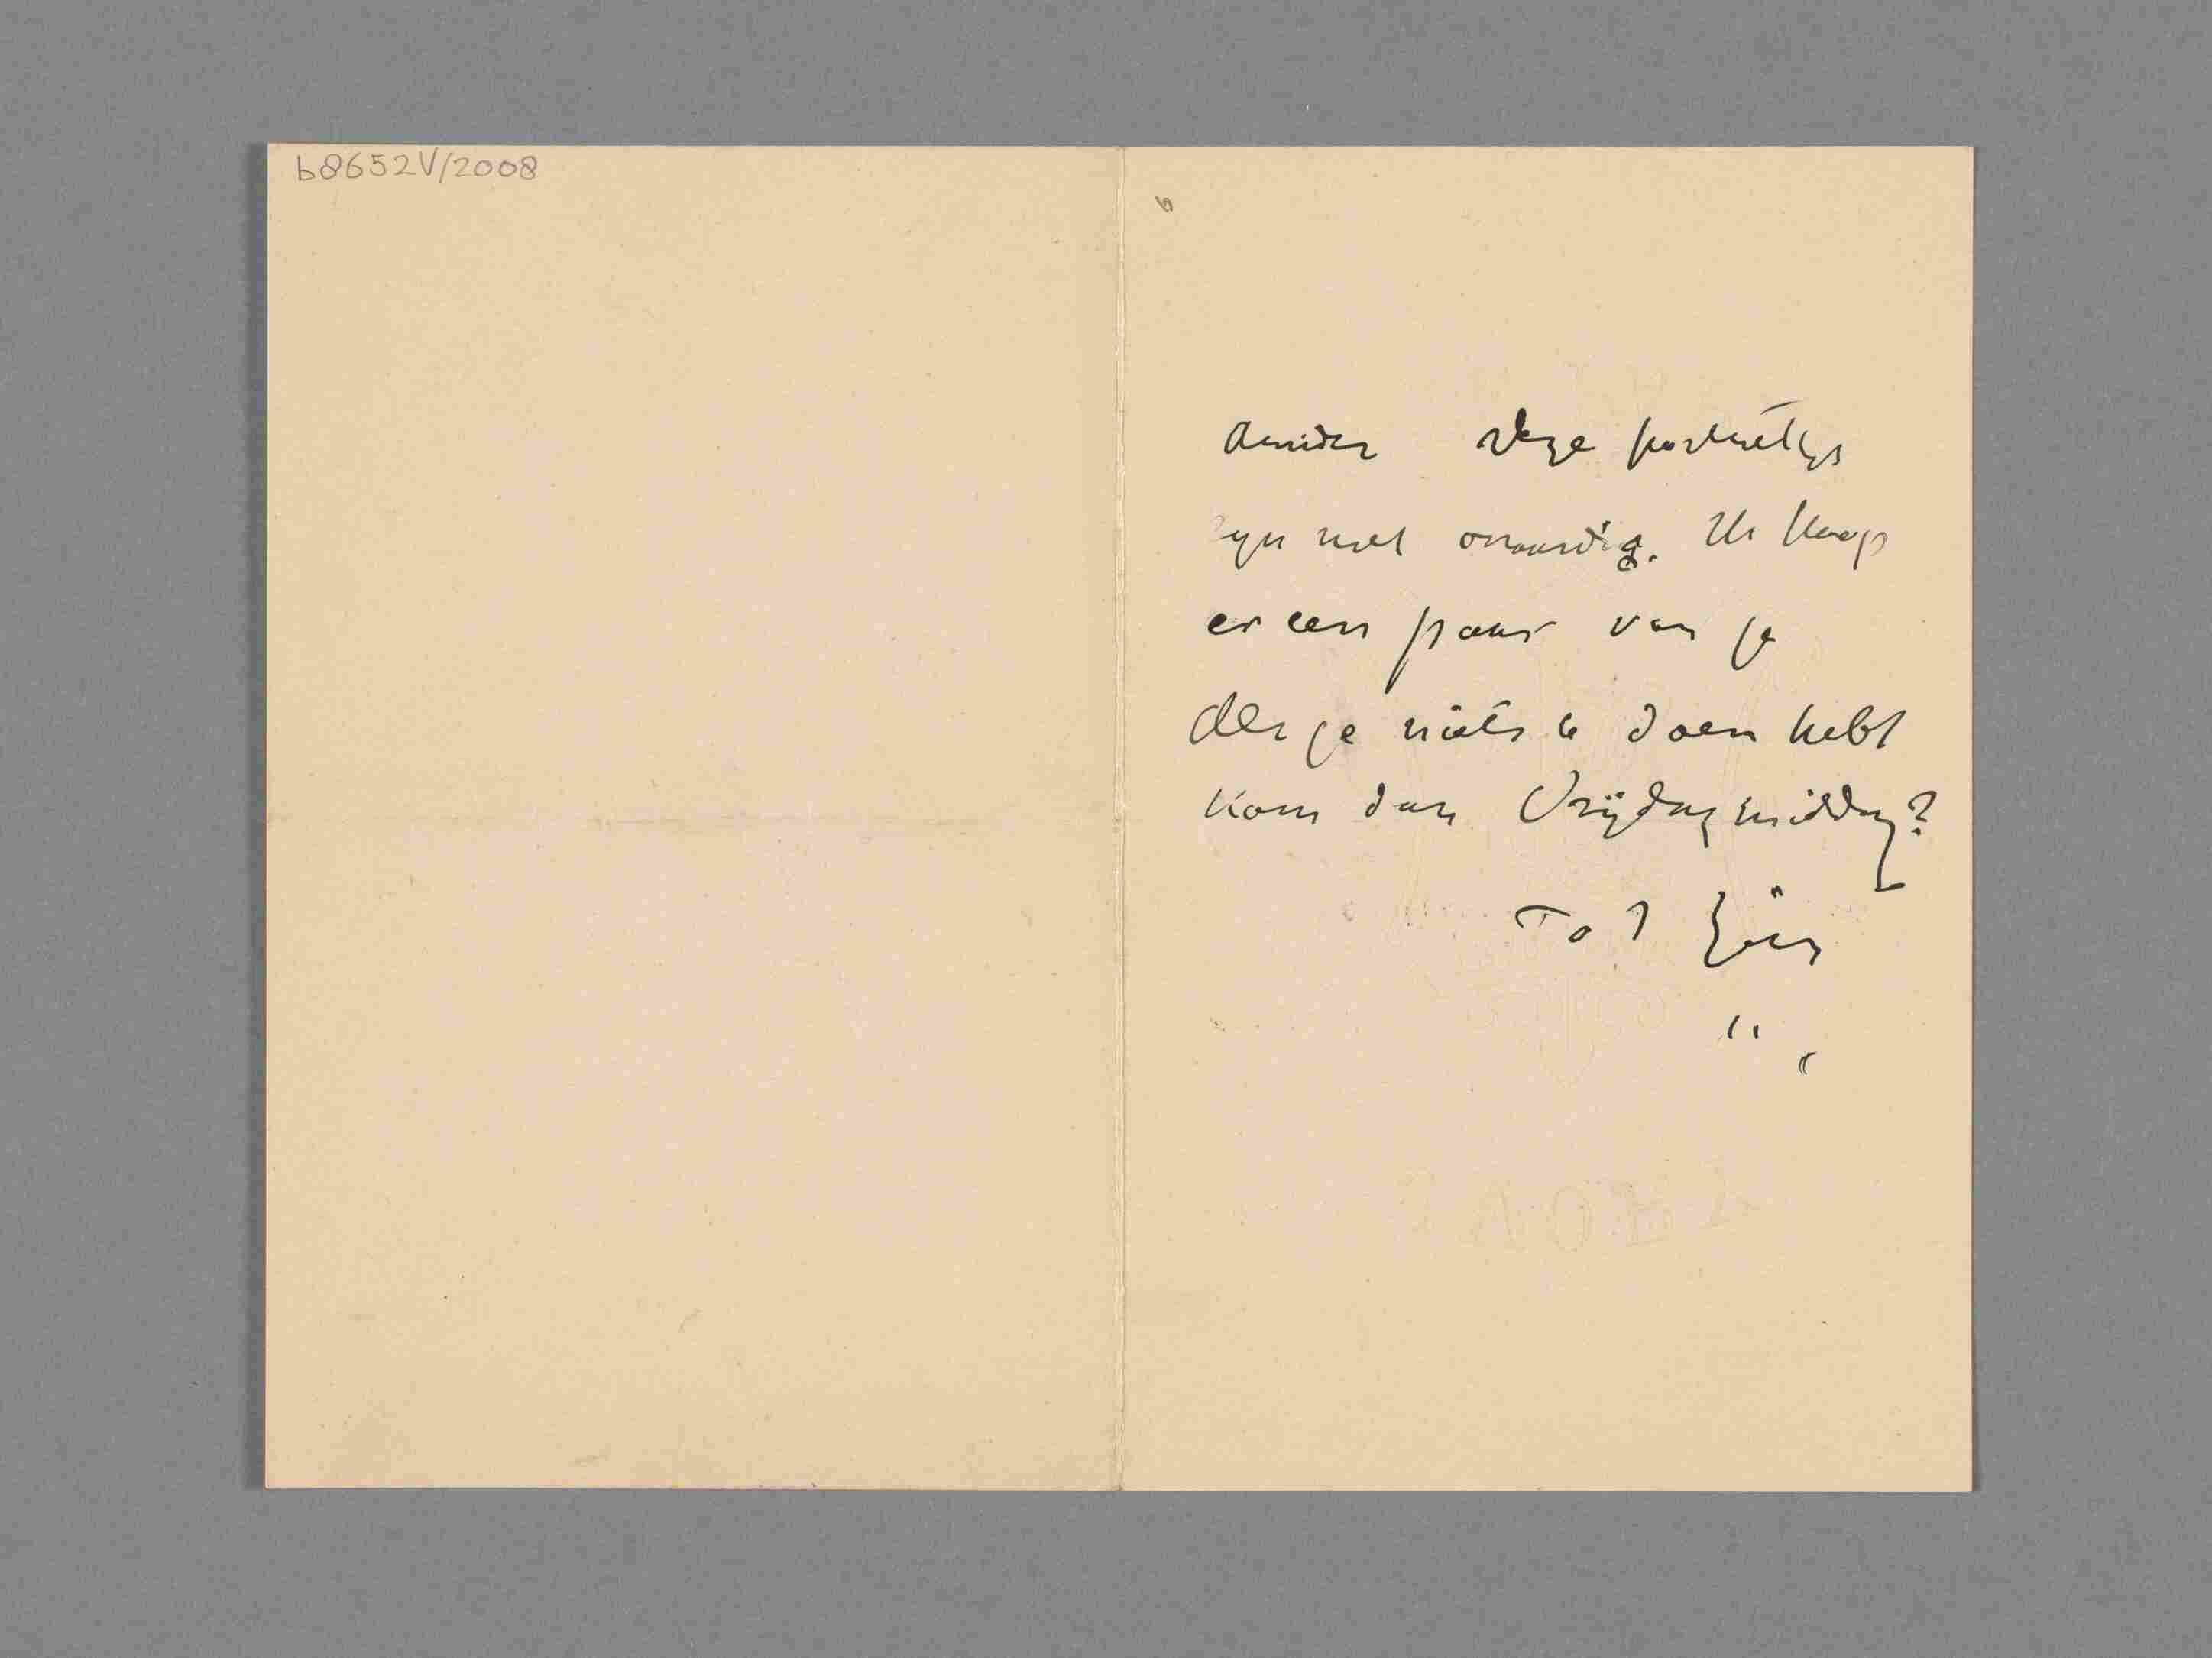 b8652V/2008
6
Amice Deze portretjes
zijn niet onaardig. Ik koop
er een paar van je
Als je niets te doen hebt
Kom dan Vrijdagmiddag?
Tot ziens